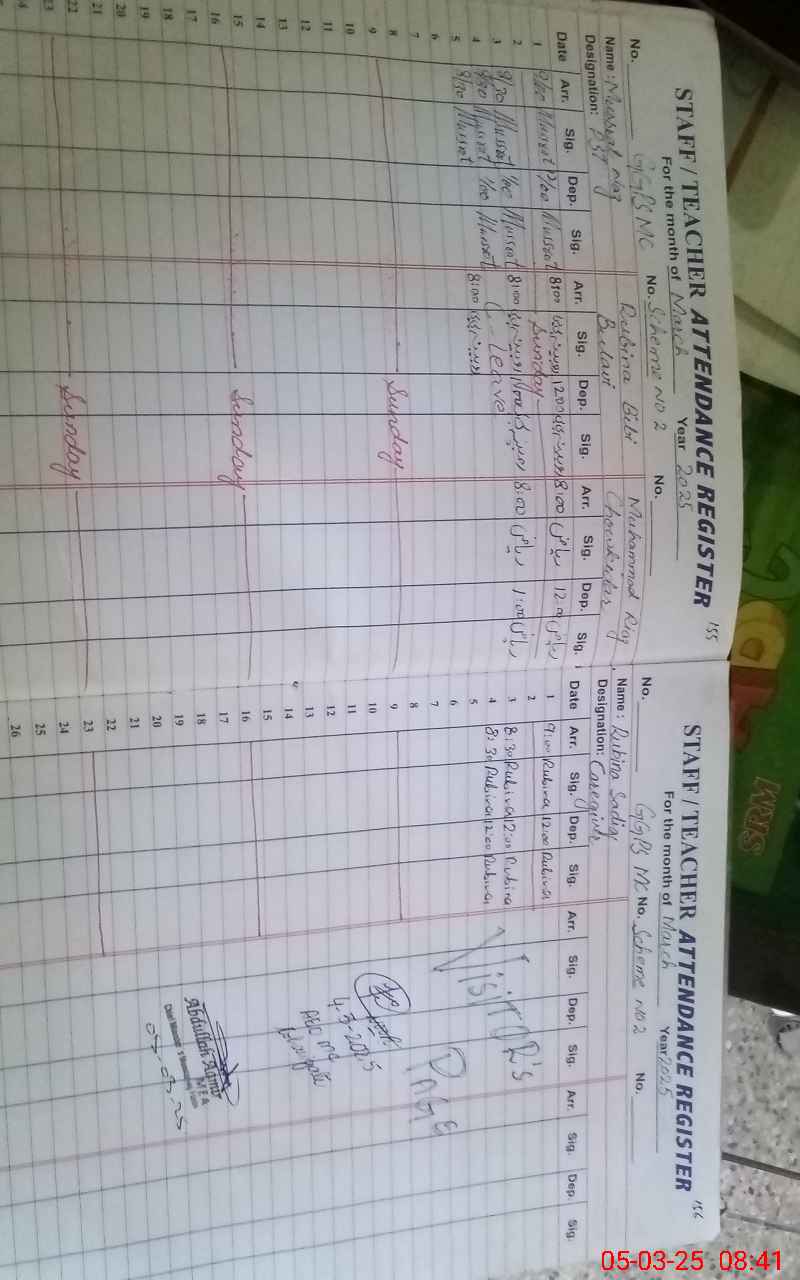 155
STAFF / TEACHER ATTENDANCE REGISTER
For the month of March Year 2025
GGPS MC No. Scheme NO 2 No.
No.
Name: Mussrat Niaz Rubina Bibi Muhammad Riaz
Designation: PST Chowkidar
Date Arr. Sig. Dep. Sig. Arr. Sig. Dep. Sig. Arr. Sig. Dep. Sig.
1 9/00 Mussrat Mussrat 8:00 12:00 8:00 ریاض 12:0 ریاض
2 Sunday
3 8/30 Mussrat 1/00 Mussrat 8:00 8:00 ریاض 1:00 ریاض
4 8/30 Mussrat 1/00 Mussrat C-Leave
5 8/30 Mussrat 8:00
6
7
8
9 Sunday
10
11
12
13
14
15
16 Sunday
17
18
19
20
21
22
23 Sunday
24
156
STAFF / TEACHER ATTENDANCE REGISTER
For the month of March Year 2025
No. GGPS MC No. Scheme NO 2 No.
Name: Rubina Sadiq
Designation: Caregiver
Date Arr. Sig. Dep. Sig. Arr. Sig. Dep. Sig. Arr. Sig. Dep. Sig.
1 9:00 Rubina 12:00 Rubina
2
3 8:30 Rubina 12:00 Rubina
4 8:30 Rubina 12:00 Rubina
5
6
7
8
9
10
11
12
13
14
15
16
17
18
19
20
21
22
23
24
25
26
Visitor's Page
4-3-2025
Abdullah Aamir
MEA
05-03-25
05-03-25 08:41